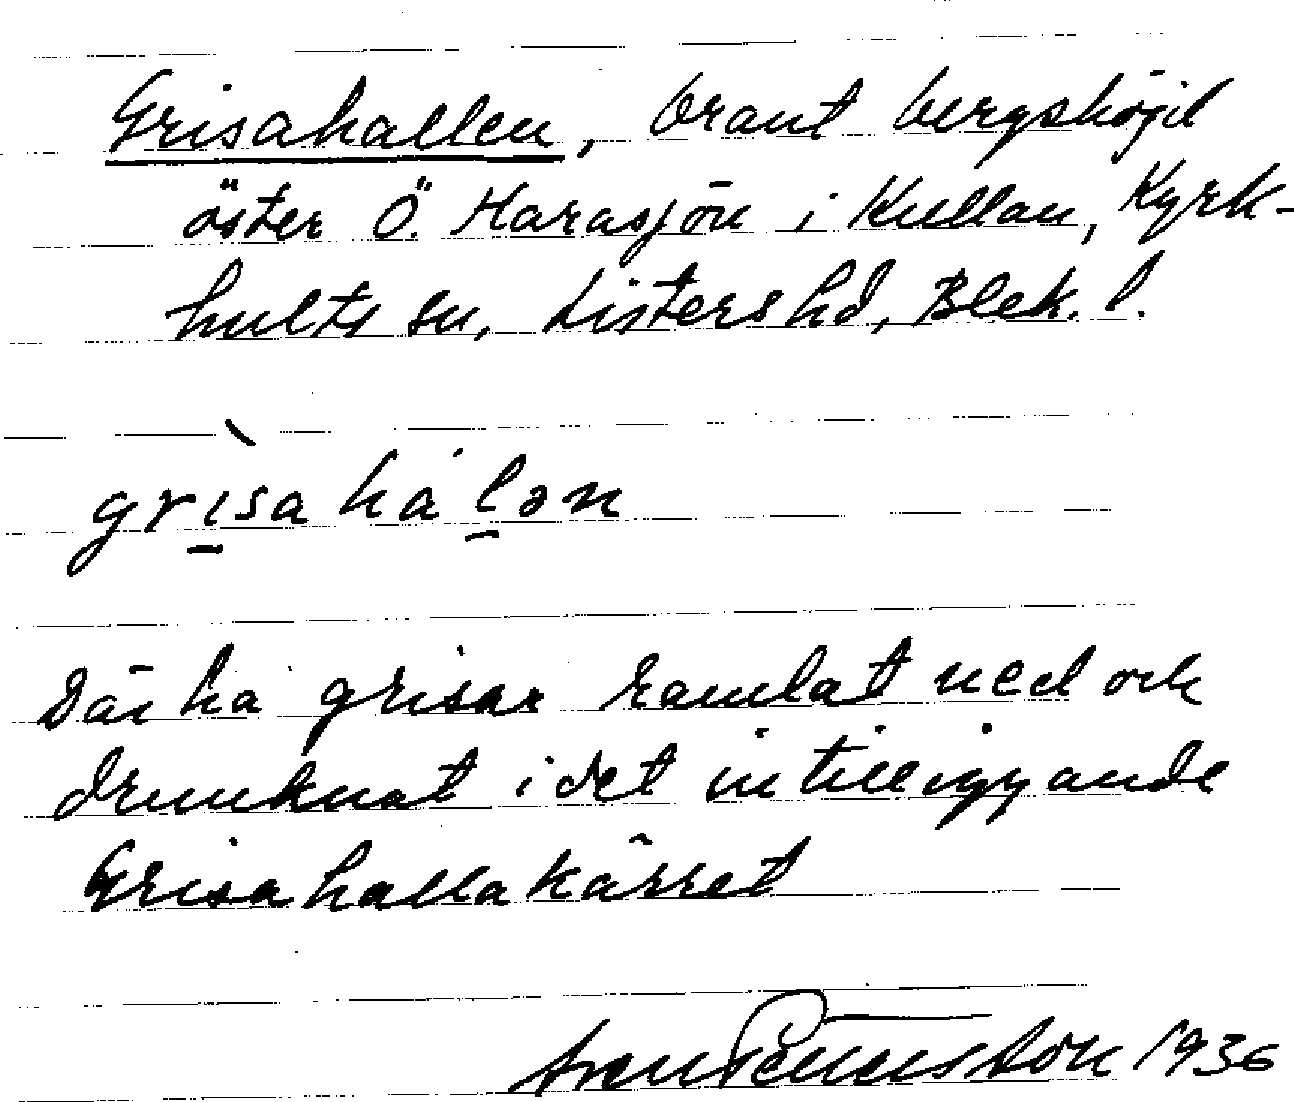 Grisahallen, brant bergshöjd
öster Ö. Harasjön i Kullan, Kyrk-
hults sn, Listers hd, Blek. l.
grìsa ha lən
Där ha grisar ramlat ned och
drunknat i det intilliggande
Grisahallakärret
Sven Benson 1936